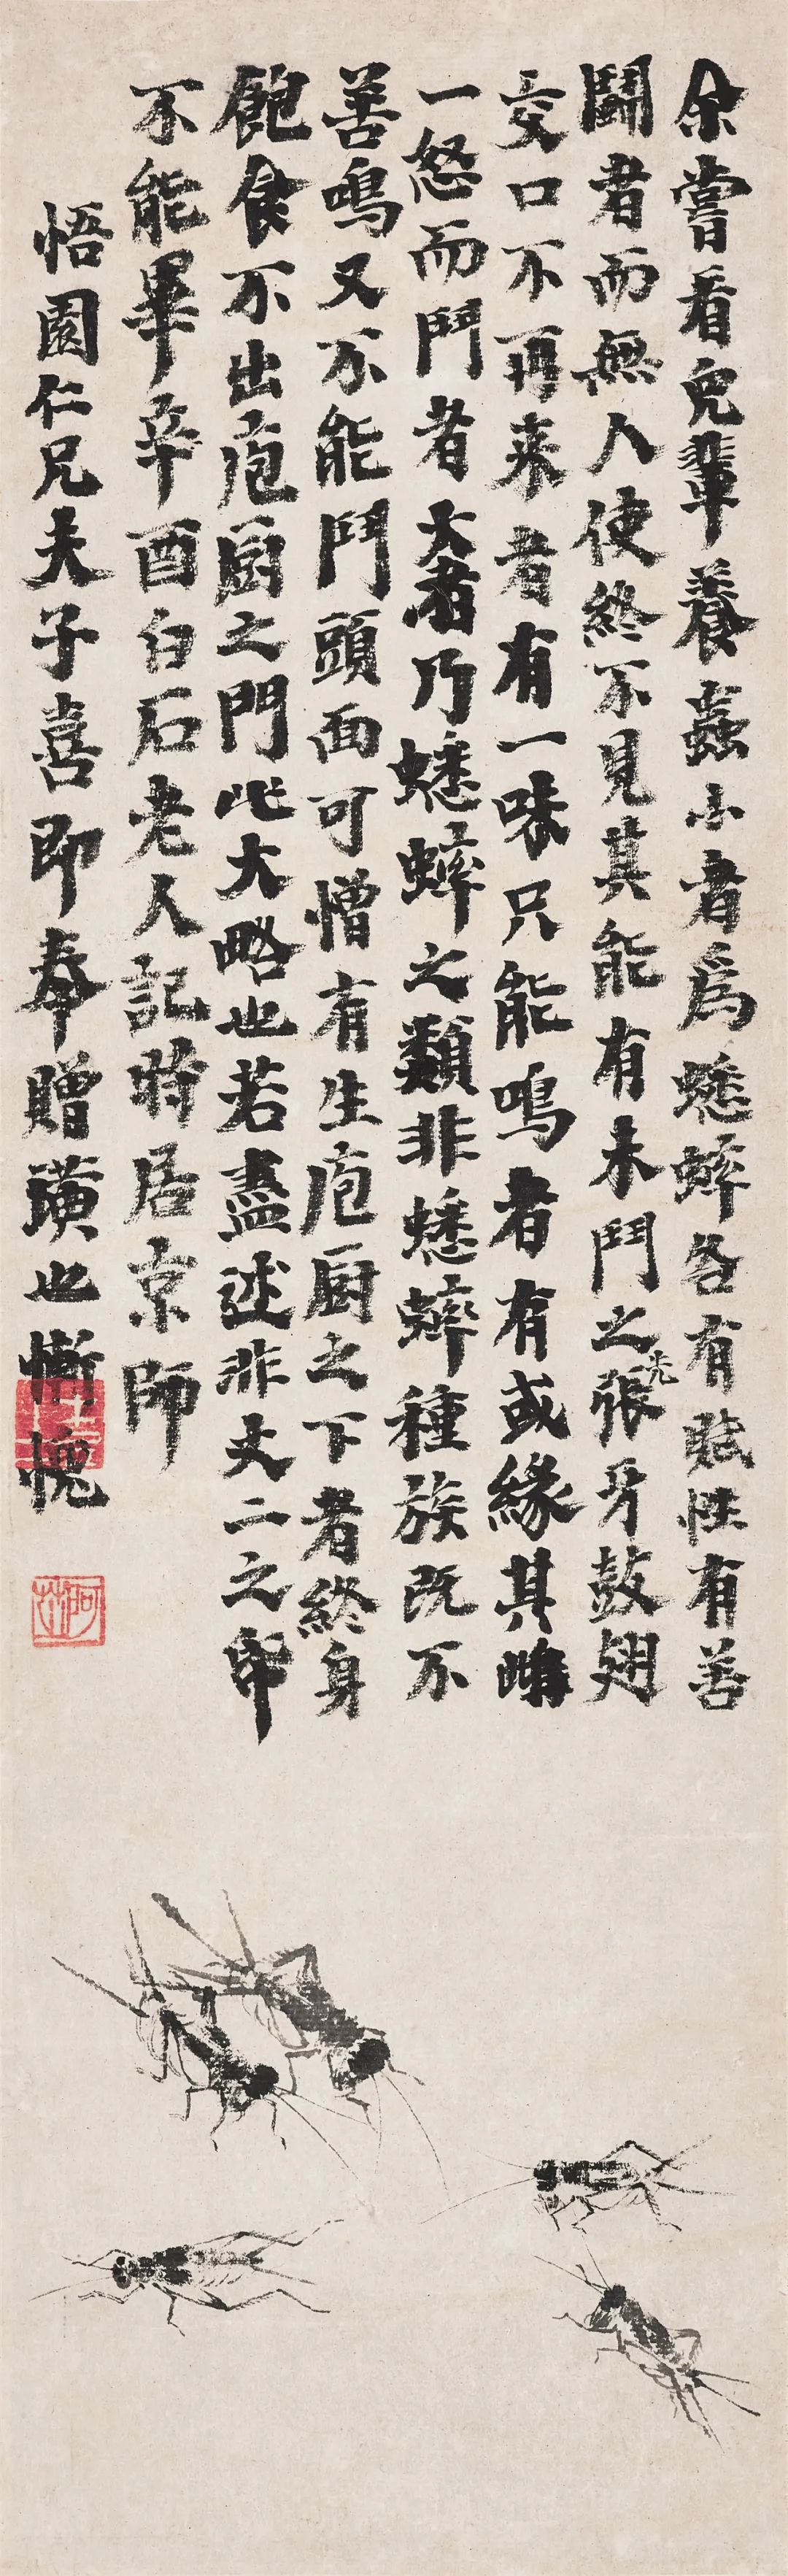 余嘗看兒輩養蟲小者爲蟋蟀各有賦性有善
鬭者而無人使終不見其能有未鬥之先張牙鼓翅
交口不再来者有一味只能鳴者有或緣其雌
一怒而鬥者大者乃蟋蟀之類非蟋蟀種族既不
善鳴又不能鬥頭面可憎有生庖厨之下者終身
飽食不出庖厨之門此大略也若盡述非丈二之帋
不能畢辛酉白石老人記時居京師
悟園仁兄夫子喜即奉贈璜也慚愧
阿芝